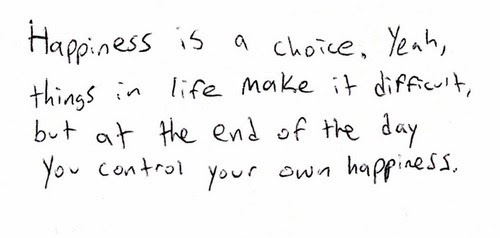 Happiness is a choice. Yeah,
things in life make it difficult,
but at the end of the day
you control your own happiness.